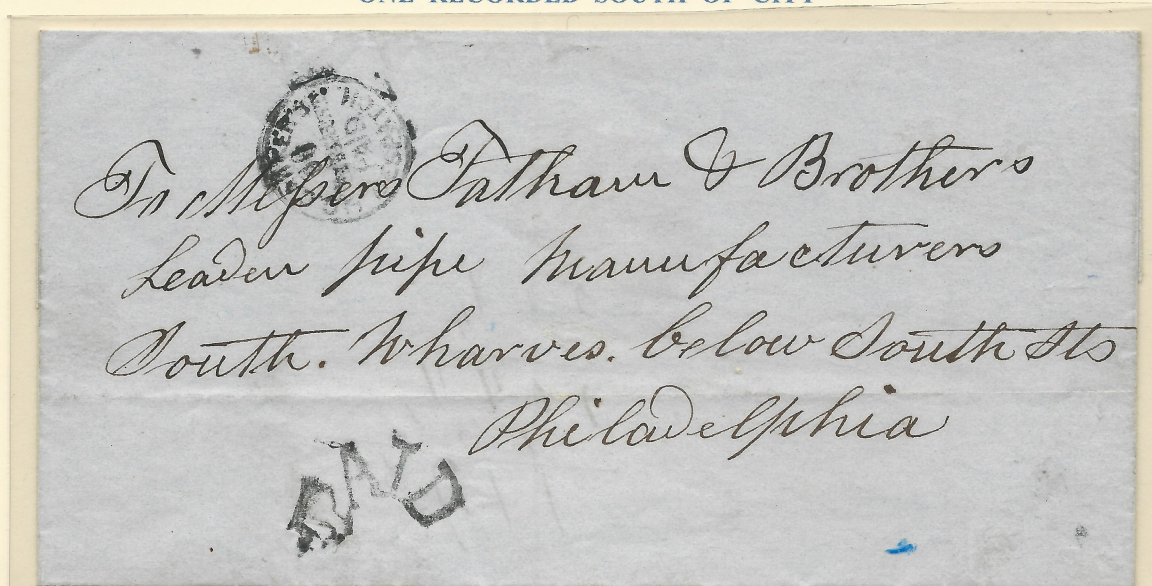 ONE RECORDED SOUTH OF CITY
PAID
To Messers Tatham & Brothers
Leaden pipe Manufacturers
South. Wharves. below South Sts
Philadelphia
PAID